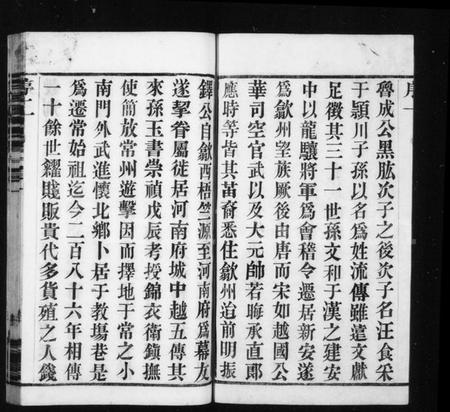 序一
魯成公黑肱次子之後次子名汪食采
于潁川子孫以名爲姓流傳雖遠文獻
足徵其三十一世孫文和于漢之建安
中以龍驤將軍爲會稽令遷居新安遂
爲歙州望族厥後由唐而宋如越國公
華司空官武以及大元帥若晦承直郎
應時等皆其苗裔悉住歙州迨前明振
鐸公自歙西梧竺源至河南府爲幕友
遂挈眷屬徙居河南府城中越五傳其
來孫玉書崇禎戊辰考授錦衣衛鎮撫
使簡放常州遊擊因而擇地于常之小
南門外武進懷北鄉卜居于教塲巷是
爲遷常始祖迄今二百八十六年相傳
一十餘世糴賤販貴代多貨殖之人錢